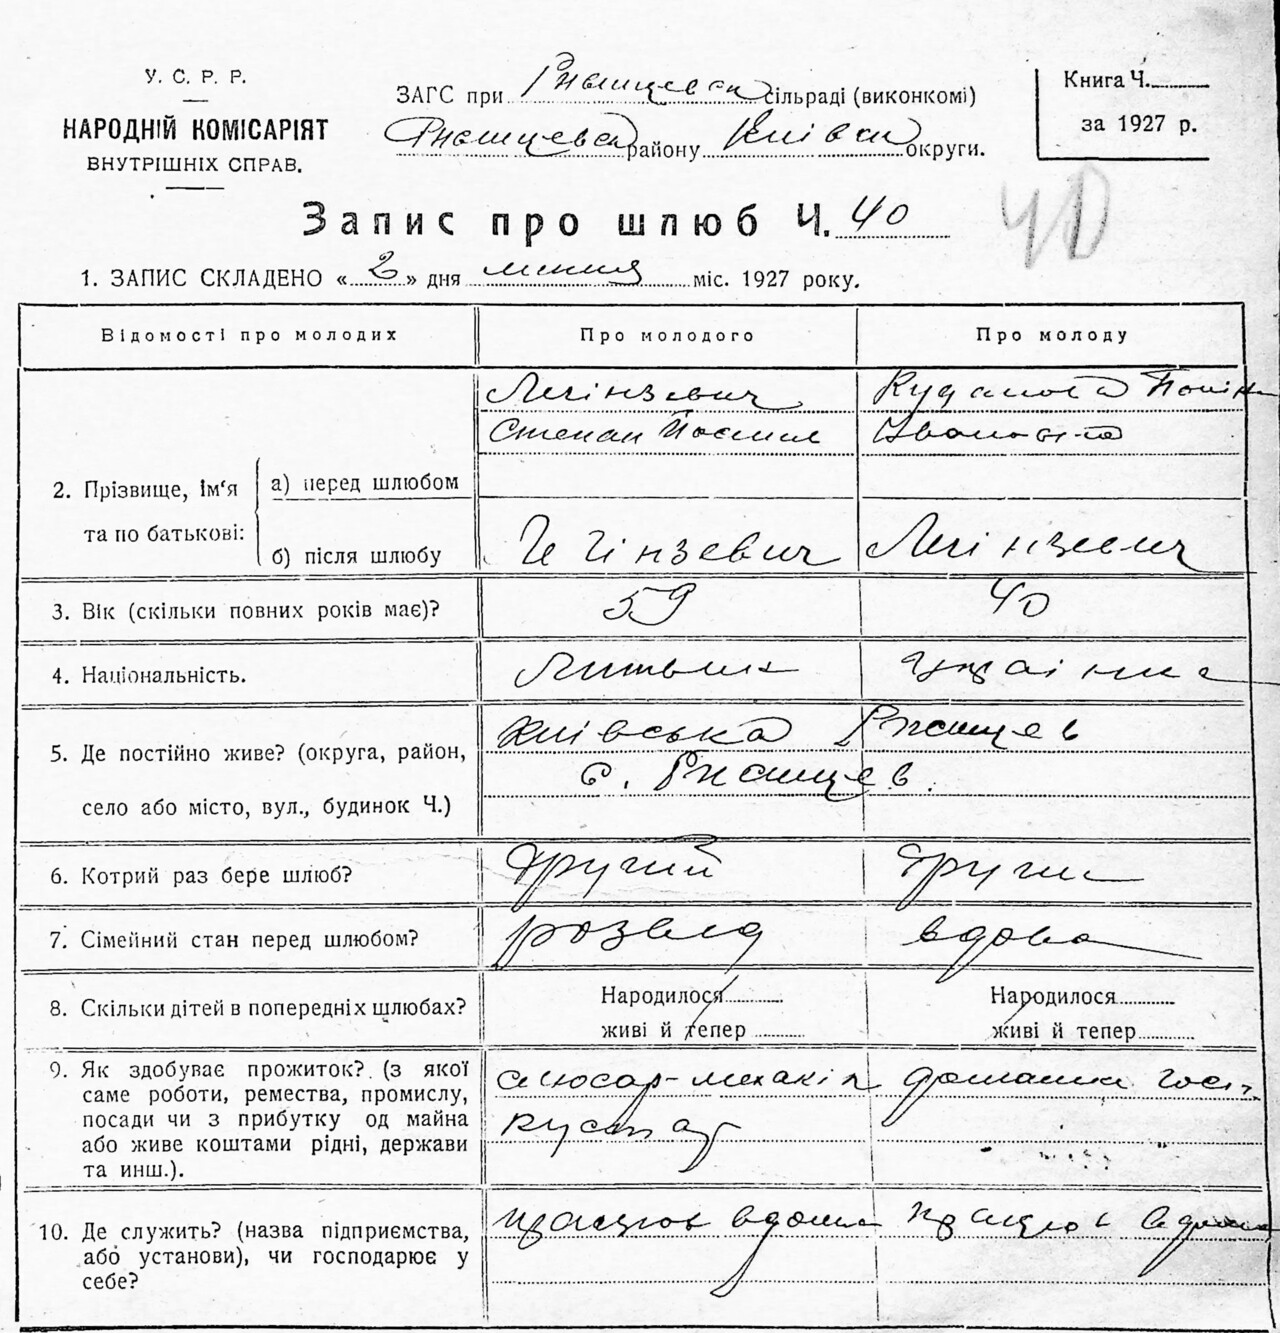 У. С. Р. Р.
НАРОДНІЙ КОМІСАРІЯТ
ВНУТРІШНІХ СПРАВ.
ЗАГС при Ржищевск сільраді (виконкомі)
Ржищевск району Київск округи.
Книга Ч.
за 1927 р.
Запис про шлюб Ч. 40
40
1. ЗАПИС СКЛАДЕНО « 2 » дня липня міс. 1927 року.
Відомості про молодих Про молодого Про молоду
2. Прізвище, ім'я та по батькові:
а) перед шлюбом
Степан
б) після шлюбу
3. Вік (скільки повних років має)? 59 40
4. Національність. Литвин Украінка
5. Де постійно живе? (округа, район,
село або місто, вул., будинок Ч.)
Київська Ржищев
с. Ржищев.
6. Котрий раз бере шлюб? другий други
7. Сімейний стан перед шлюбом? розвид вдова
8. Скільки дітей в попередніх шлюбах?
Народилося Народилося
живі й тепер живі й тепер
9. Як здобуває прожиток? (з якої
саме роботи, ремества, промислу,
посади чи з прибутку од майна
або живе коштами рідні, держави
та инш.).
слюсар-механік домашн госп.
кустар
10. Де служить? (назва підприємства,
або установи), чи господарює у
себе?
працюе вдома працює вдома